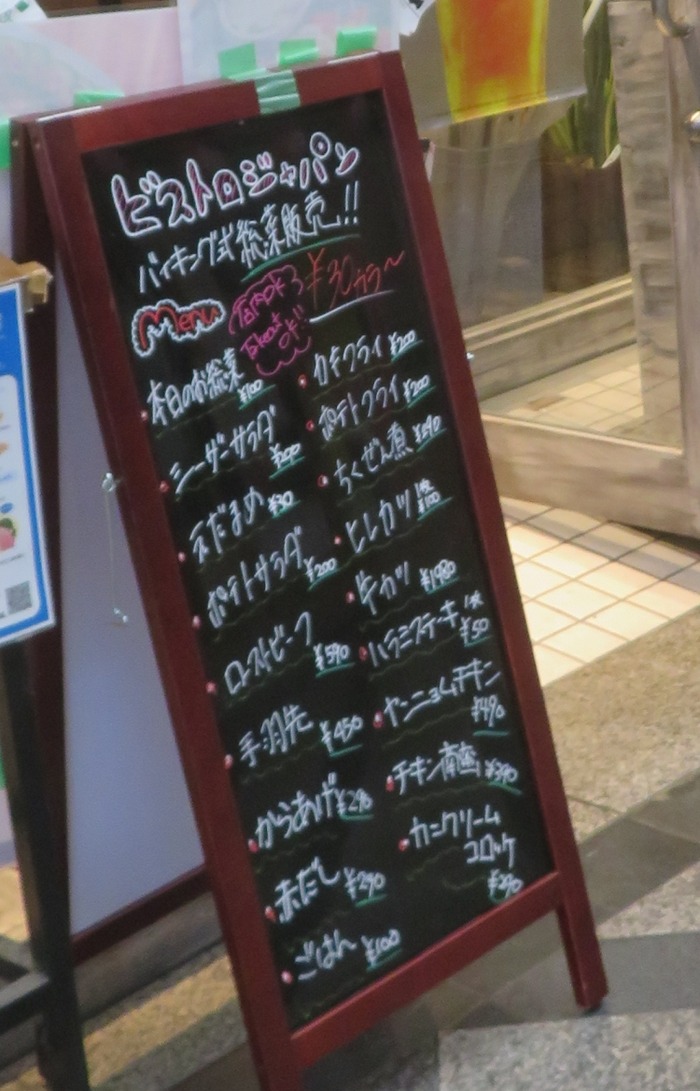 ビストロジャパン
バイキング式総菜販売!!
Menu
店内OK
Takeout OK!!
¥30から〜
本日のお総菜 ¥100
シーザーサラダ ¥200
えだまめ ¥30
ポテトサラダ ¥200
ローストビーフ ¥590
手羽先 ¥450
からあげ ¥290
赤だし ¥290
ごはん ¥100
カキフライ ¥200
ポテトフライ ¥200
ちくぜん煮 ¥290
ヒレカツ 1枚 ¥100
牛カツ ¥1980
ハラミステーキ 1枚 ¥50
ヤンニョムチキン ¥490
チキン南蛮 ¥390
カニクリーム
コロッケ
¥290